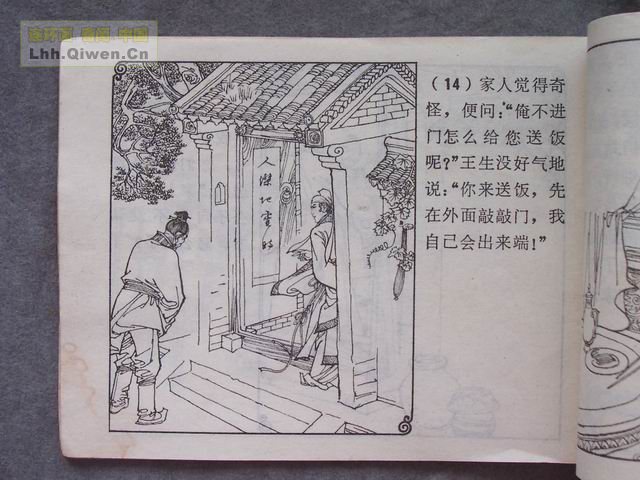 连环画 看图 中国
Lhh.Qiwen.Cn
(14) 家人觉得奇
怪，便问：“俺不进
门怎么给您送饭
呢？”王生没好气地
说：“你来送饭，先
在外面敲敲门，我
自己会出来端！”
人傑地靈